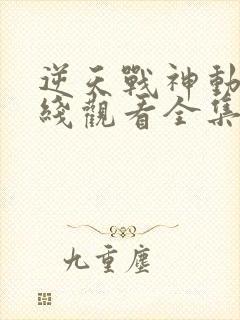 逆天戰神動
綫觀看全集
九重塵